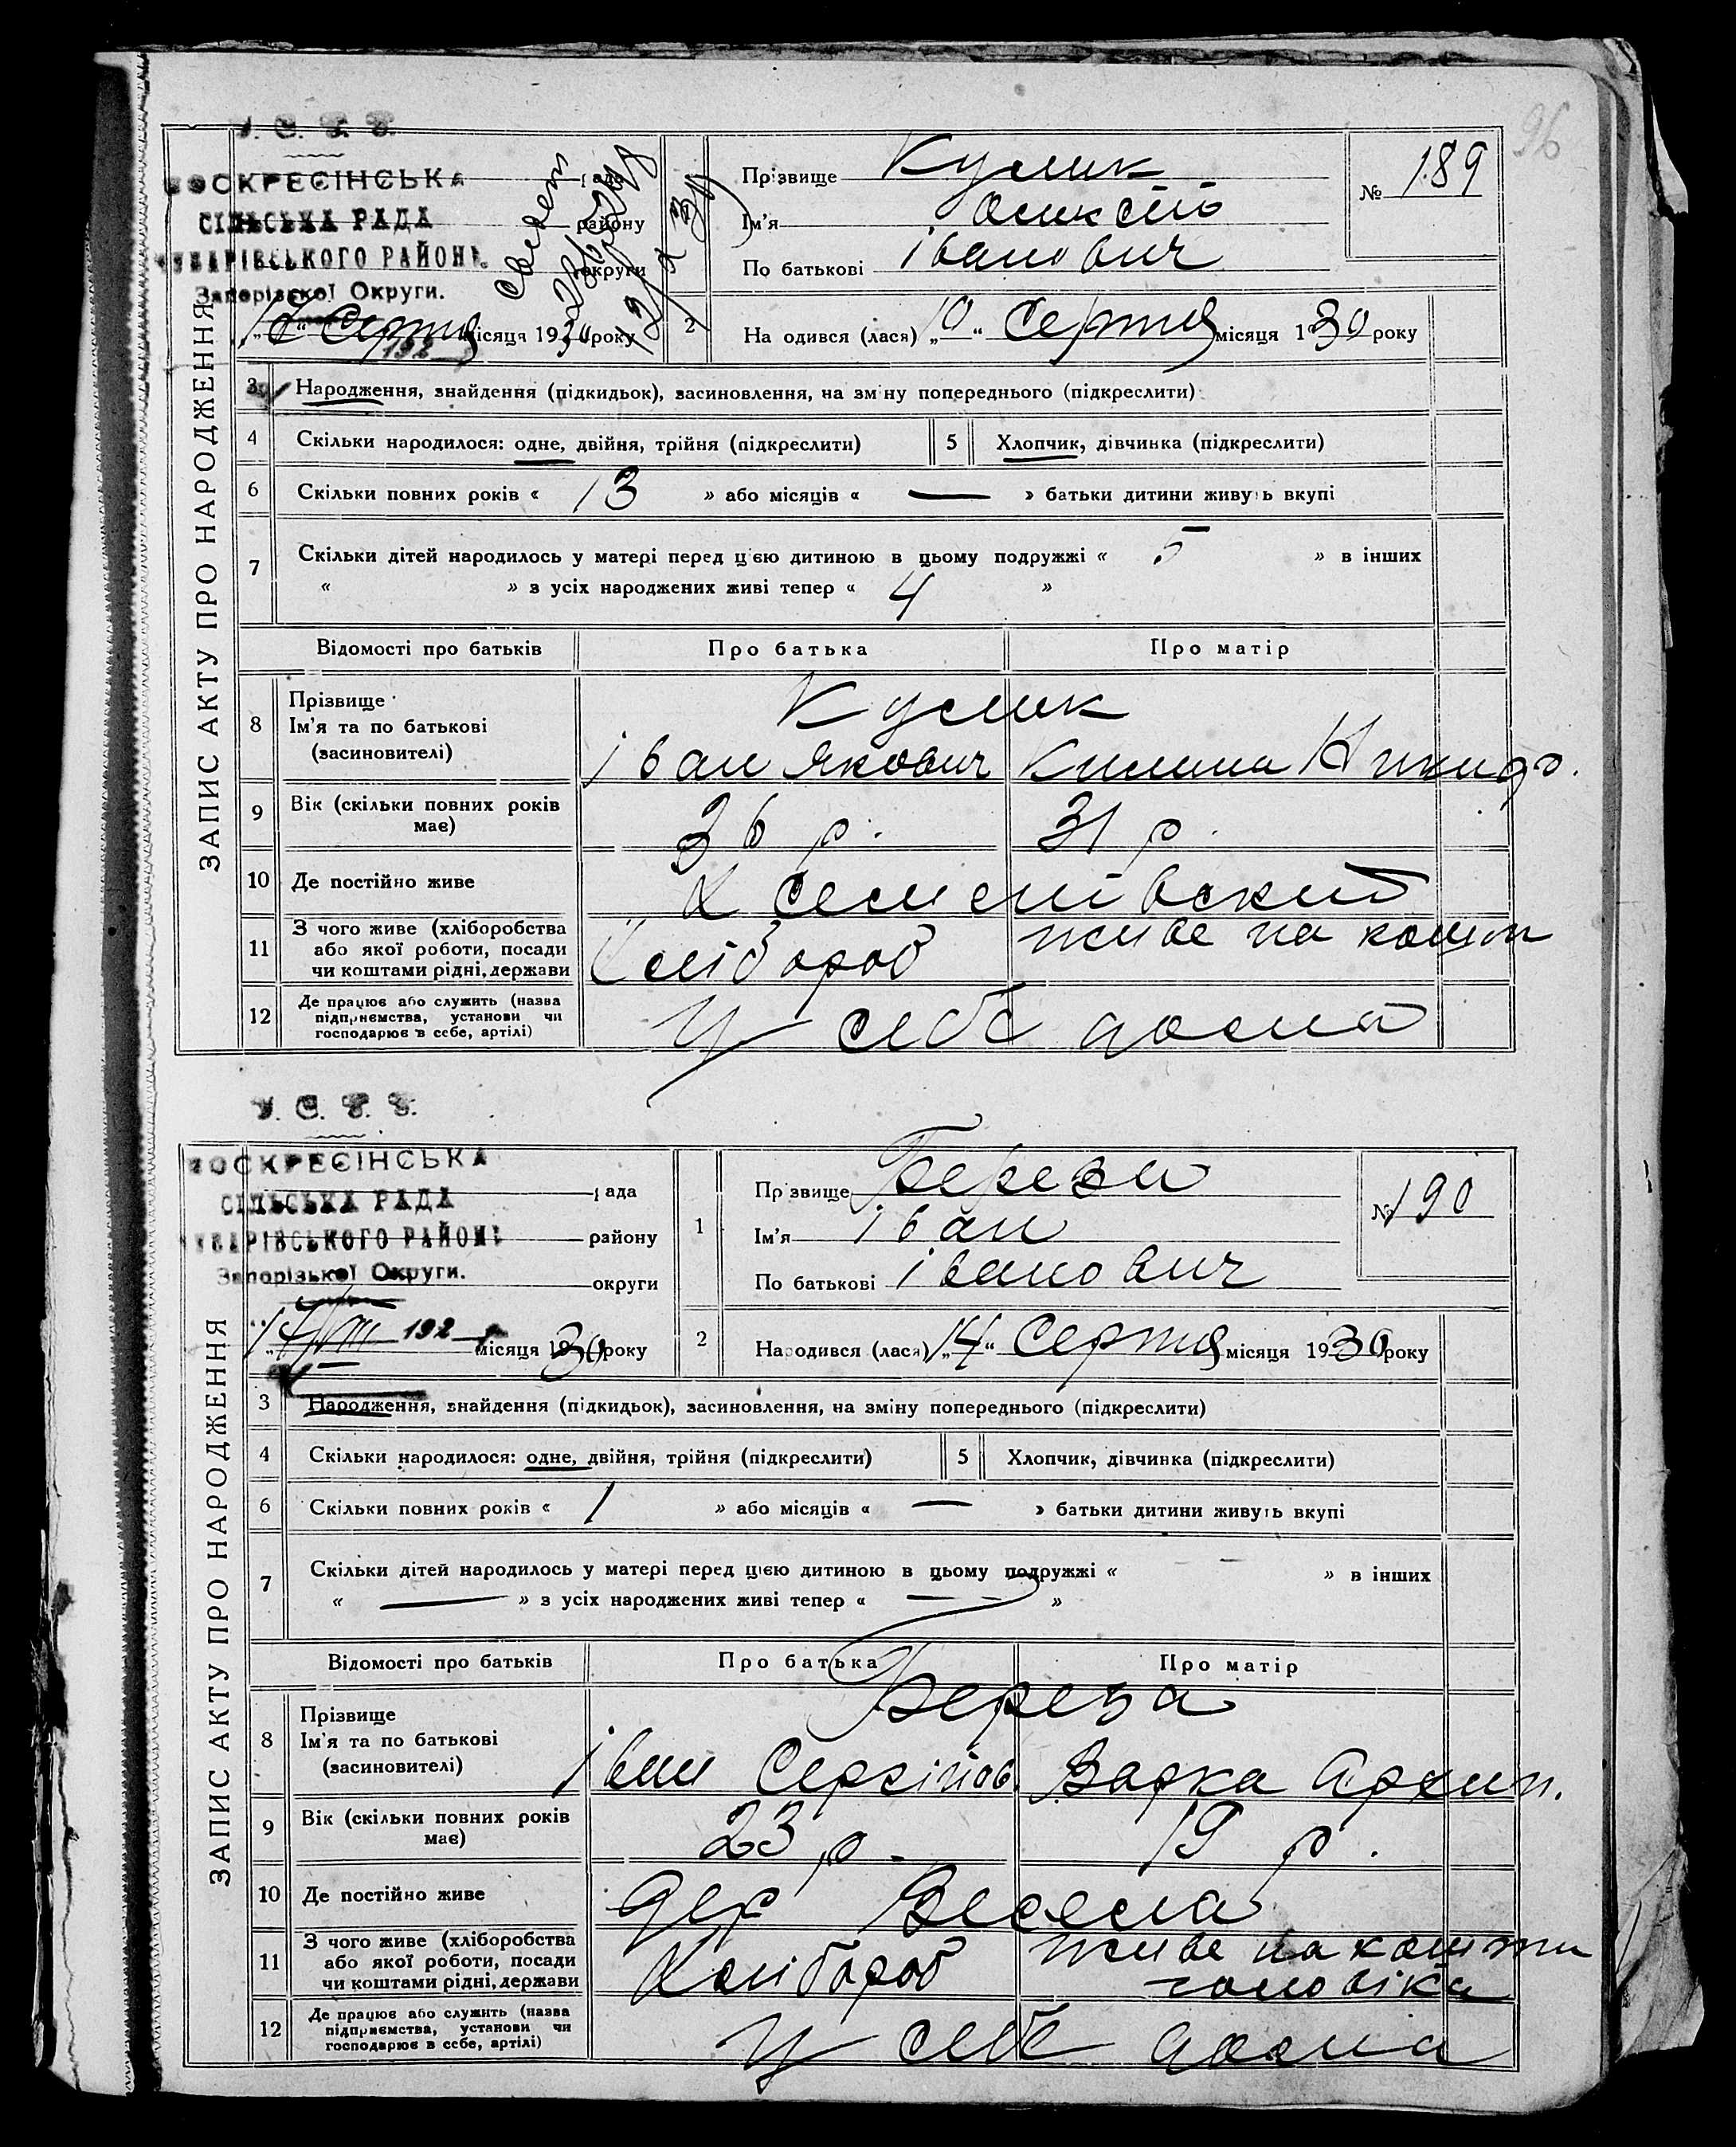 96
У. С. Р. Р.
ВОСКРЕСІНСЬКА рада
СІЛЬСЬКА РАДА району
ЧУБАРІВСЬКОГО РАЙОНУ округи
Запорізької Округи.
Серпня місяця 1930 року
192
1
Прізвище Кулик
Ім'я Олексій
По батькові Іванович
№ 189
2
Народився (лася) „10" Серпня місяця 1930 року
ЗАПИС АКТУ ПРО НАРОДЖЕННЯ
3 Народження, знайдення (підкидьок), засиновлення, на зміну попереднього (підкреслити)
4 Скільки народилося: одне, двійня, трійня (підкреслити) 5 Хлопчик, дівчинка (підкреслити)
6 Скільки повних років « 13 » або місяців « — » батьки дитини живуть вкупі
7 Скільки дітей народилось у матері перед цією дитиною в цьому подружжі « 5 » в інших
« » з усіх народжених живі тепер « 4 »
Відомості про батьків Про батька Про матір
8 Прізвище Кулик
Ім'я та по батькові
(засиновителі) Іван Якович Килина Никидо.
9 Вік (скільки повних років має) 36 р. 31 р.
10 Де постійно живе Х Семенівский
11 З чого живе (хліборобства
або якої роботи, посади
чи коштами рідні, держави Хлібороб живе на кошти
12 Де працює або служить (назва
підприємства, установи чи
господарює в себе, артілі) У себе дома
У. С. Р. Р.
ВОСКРЕСІНСЬКА
СІЛЬСЬКА РАДА рада
ЧУБАРІВСЬКОГО РАЙОНУ району
Запорізької Округи. округи
192 місяця 1930 року
1
Прізвище Береза
Ім'я Іван
По батькові Іванович
№ 190
2
Народився (лася) „14" Серпня місяця 1930 року
ЗАПИС АКТУ ПРО НАРОДЖЕННЯ
3 Народження, знайдення (підкидьок), засиновлення, на зміну попереднього (підкреслити)
4 Скільки народилося: одне, двійня, трійня (підкреслити) 5 Хлопчик, дівчинка (підкреслити)
6 Скільки повних років « 1 » або місяців « — » батьки дитини живуть вкупі
7 Скільки дітей народилось у матері перед цією дитиною в цьому подружжі « — » в інших
« — » з усіх народжених живі тепер « — »
Відомості про батьків Про батька Про матір
8 Прізвище Береза
Ім'я та по батькові
(засиновителі) Іван Сергійов. Варка Архип.
9 Вік (скільки повних років має) 23 р. 19 р.
10 Де постійно живе дер Весела
11 З чого живе (хліборобства
або якої роботи, посади
чи коштами рідні, держави Хлібороб живе на кошти
чоловіка
12 Де працює або служить (назва
підприємства, установи чи
господарює в себе, артілі) У себе дома